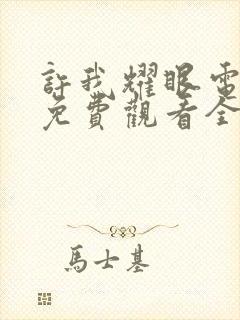 許我耀眼電
免費觀看全
馬士基